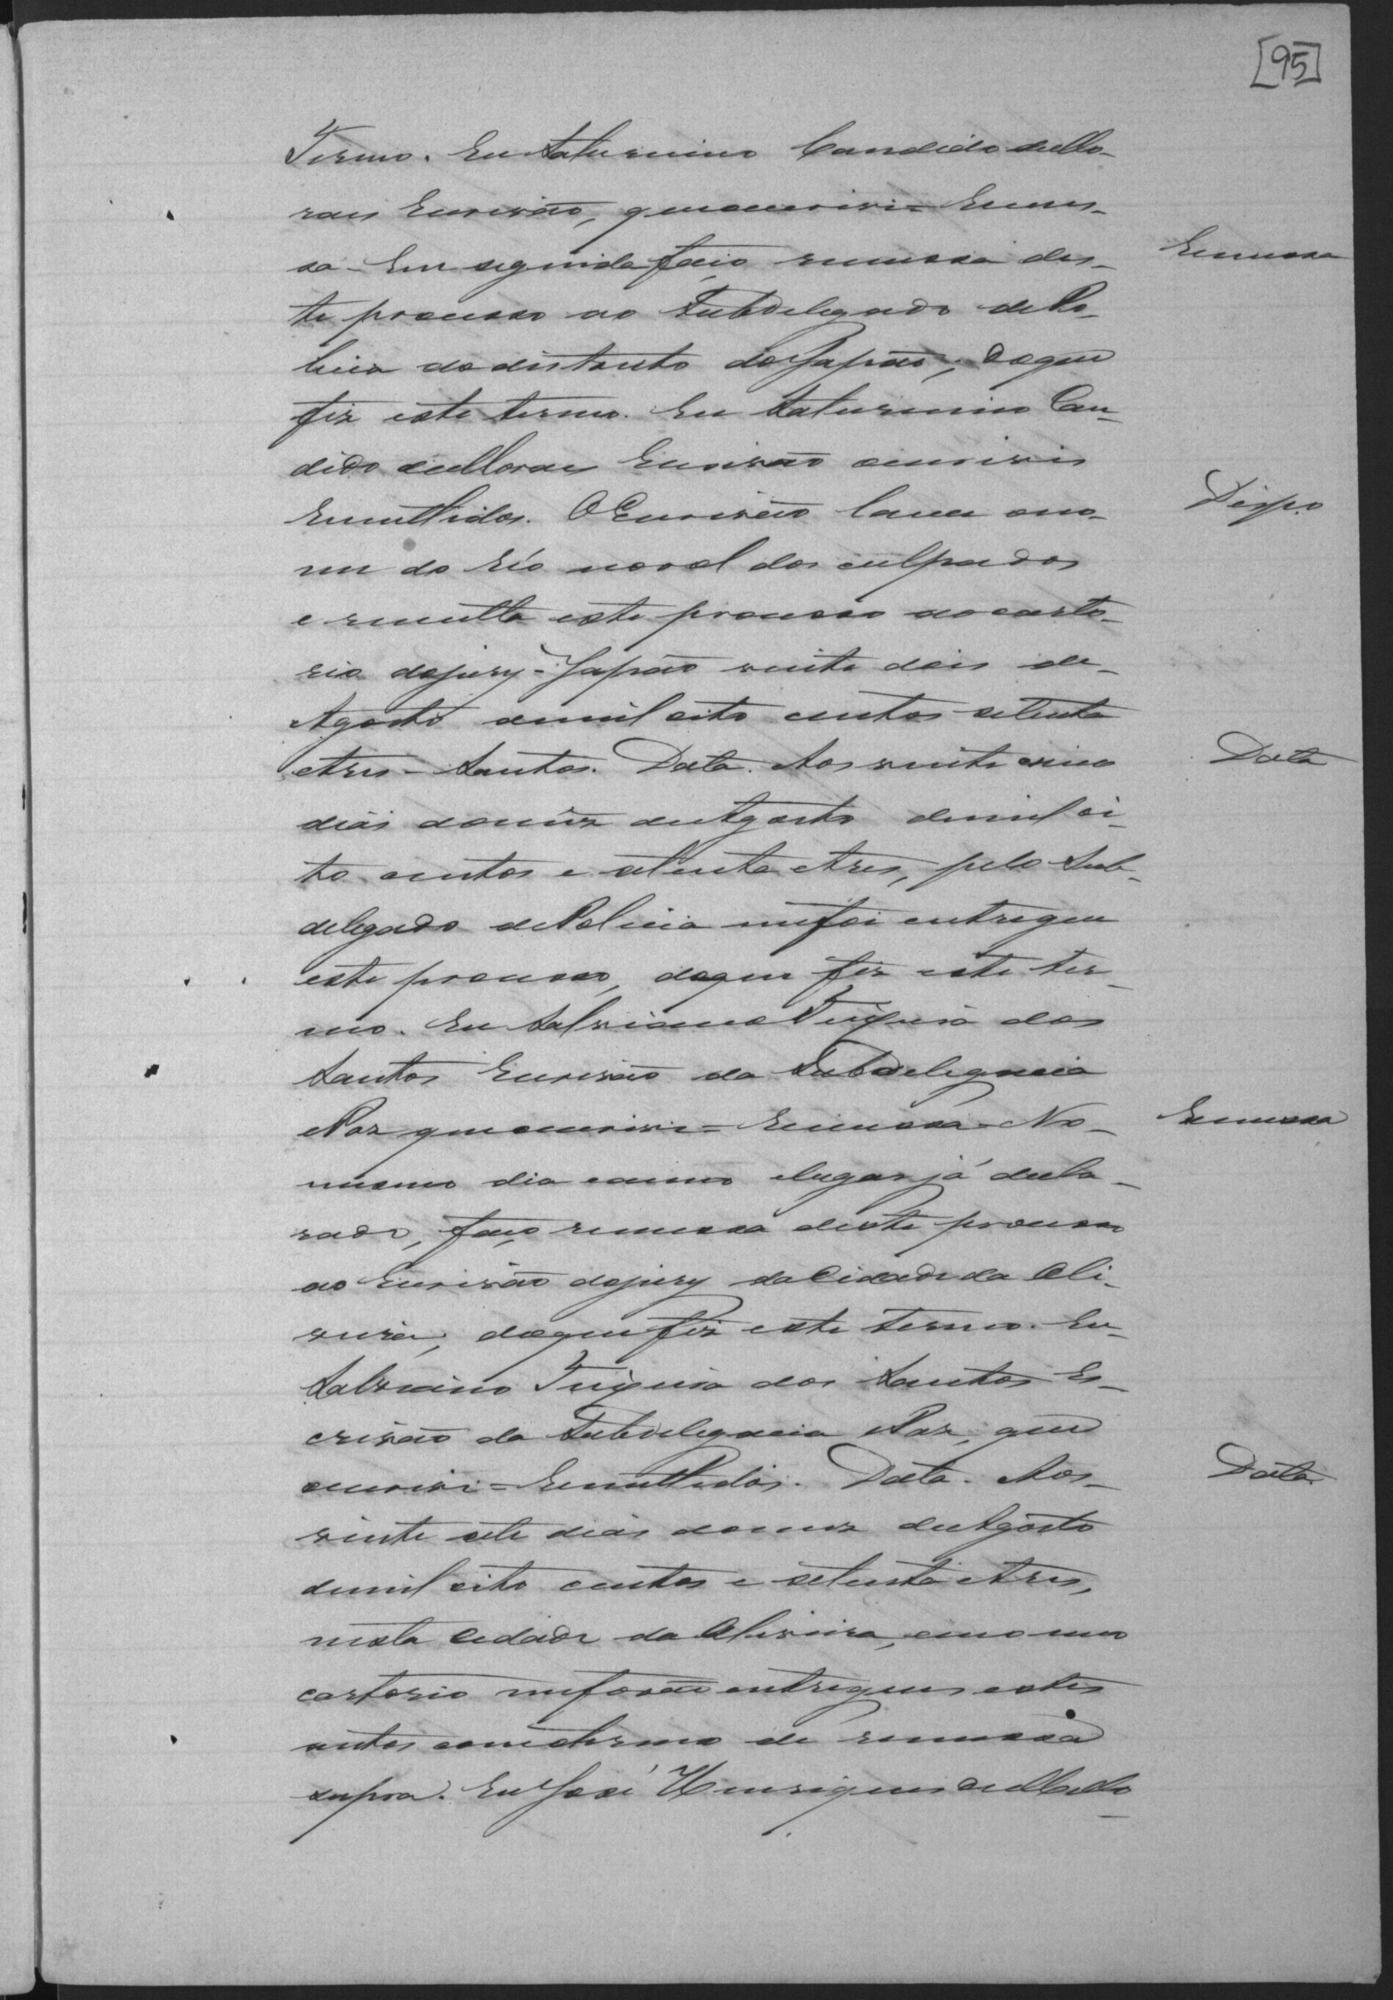 [95]
Termo. Eu Saturnino Candido de Mo-
raes Escrivão, que escrevi = Remes-
sa - Em seguida faço remessa des-
Remessa
te processo ao Subdelegado de Po-
licia do districto do Japão, do que
fiz este termo. Eu Saturnino Can-
dido de Moraes Escrivão escrevi
Remettidos. O Escrivão lance o no-
Desp.o
me do réo no rol dos culpados
e remetta este processo ao carto-
rio do jury - Japão vinte dois de
Agosto de mil oito centos setenta
e tres - Santos. Data. Aos vinte cinco
Data
dias do mez de Agosto de mil oi-
to centos e setenta e tres, pelo Sub-
delegado de Policia me foi entregue
este processo, do que fiz este ter-
mo. Eu Salviano dos
Santos Escrivão da Subdelegacia
e Paz que escrevi = Remessa - No
Remessa
mesmo dia e anno e lugar já decla-
rado, faço remessa deste processo
ao Escrivão do jury da Cidade da Oli-
veira, do que fiz este termo. Eu
Salviano dos Santos Es-
crivão da Subdelegacia e Paz, que
escrevi = Remettidos. Data. Aos
Data
vinte sete dias do mez de Agosto
de mil oito centos e setenta e tres,
nesta Cidade da Oliveira, em o meu
cartorio me forão entregues estes
autos com o termo de remessa
supra. Eu José Henriques de Mello